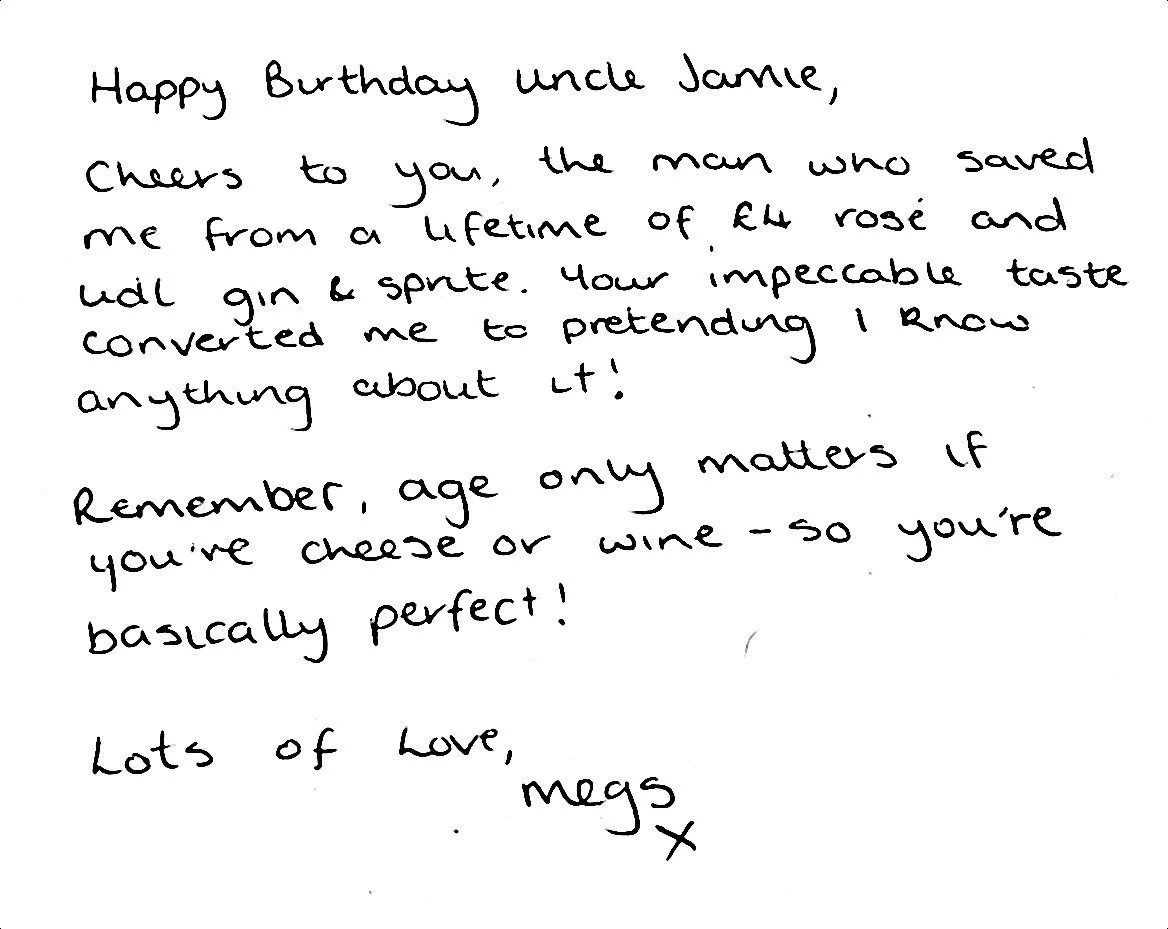 Happy Birthday uncle Jamie,
Cheers to you, the man who saved
me from a lifetime of £4 rosé and
udl gin & sprite. Your impeccable taste
converted me to pretending I know
anything about it!
Remember, age only matters if
you're cheese or wine - so you're
basically perfect!
Lots of Love,
megs
x